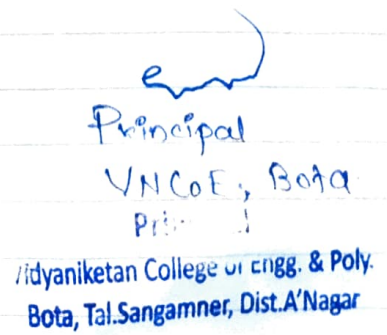 Principal
VNCOE, Bota
Vidyaniketan College of Engg. & Poly.
Bota, Tal.Sangamner, Dist.A'Nagar